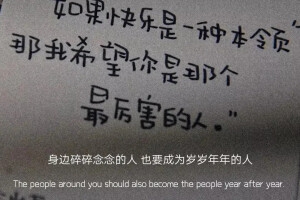 如果快乐是一种本领
那我希望你是那个
最厉害的人。"
身边碎碎念念的人 也要成为岁岁年年的人
The people around you should also become the people year after year.